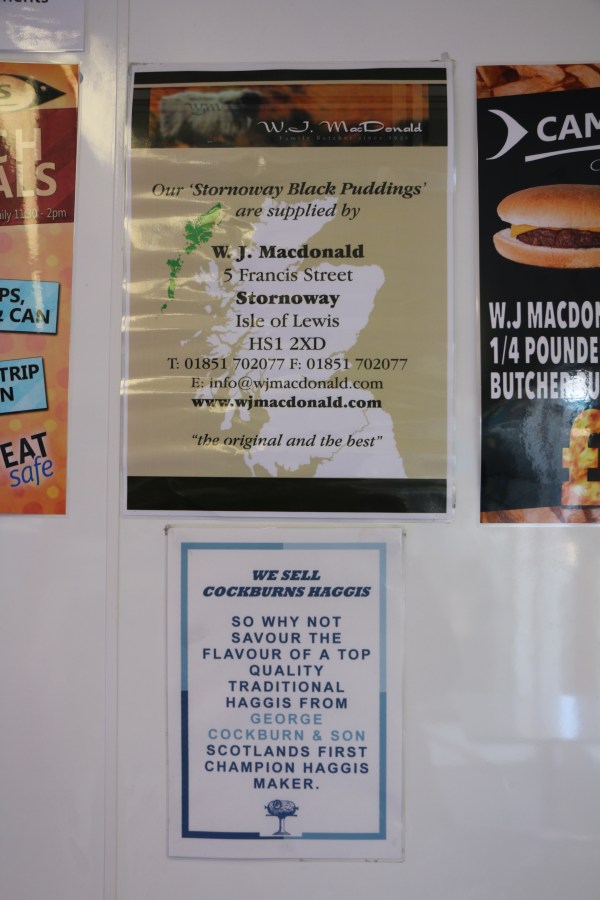 W.J. MacDonald
Our 'Stornoway Black Puddings'
are supplied by
W. J. Macdonald
5 Francis Street
Stornoway
Isle of Lewis
HS1 2XD
T: 01851 702077 F: 01851 702077
E: info@wjmacdonald.com
www.wjmacdonald.com
"the original and the best"
WE SELL
COCKBURNS HAGGIS
SO WHY NOT
SAVOUR THE
FLAVOUR OF A TOP
QUALITY
TRADITIONAL
HAGGIS FROM
GEORGE
COCKBURN & SON
SCOTLANDS FIRST
CHAMPION HAGGIS
MAKER.
11:30 - 2pm
& CAN
EAT
safe
CAM
W.J MACDON
1/4 POUNDE
BUTCHER
£